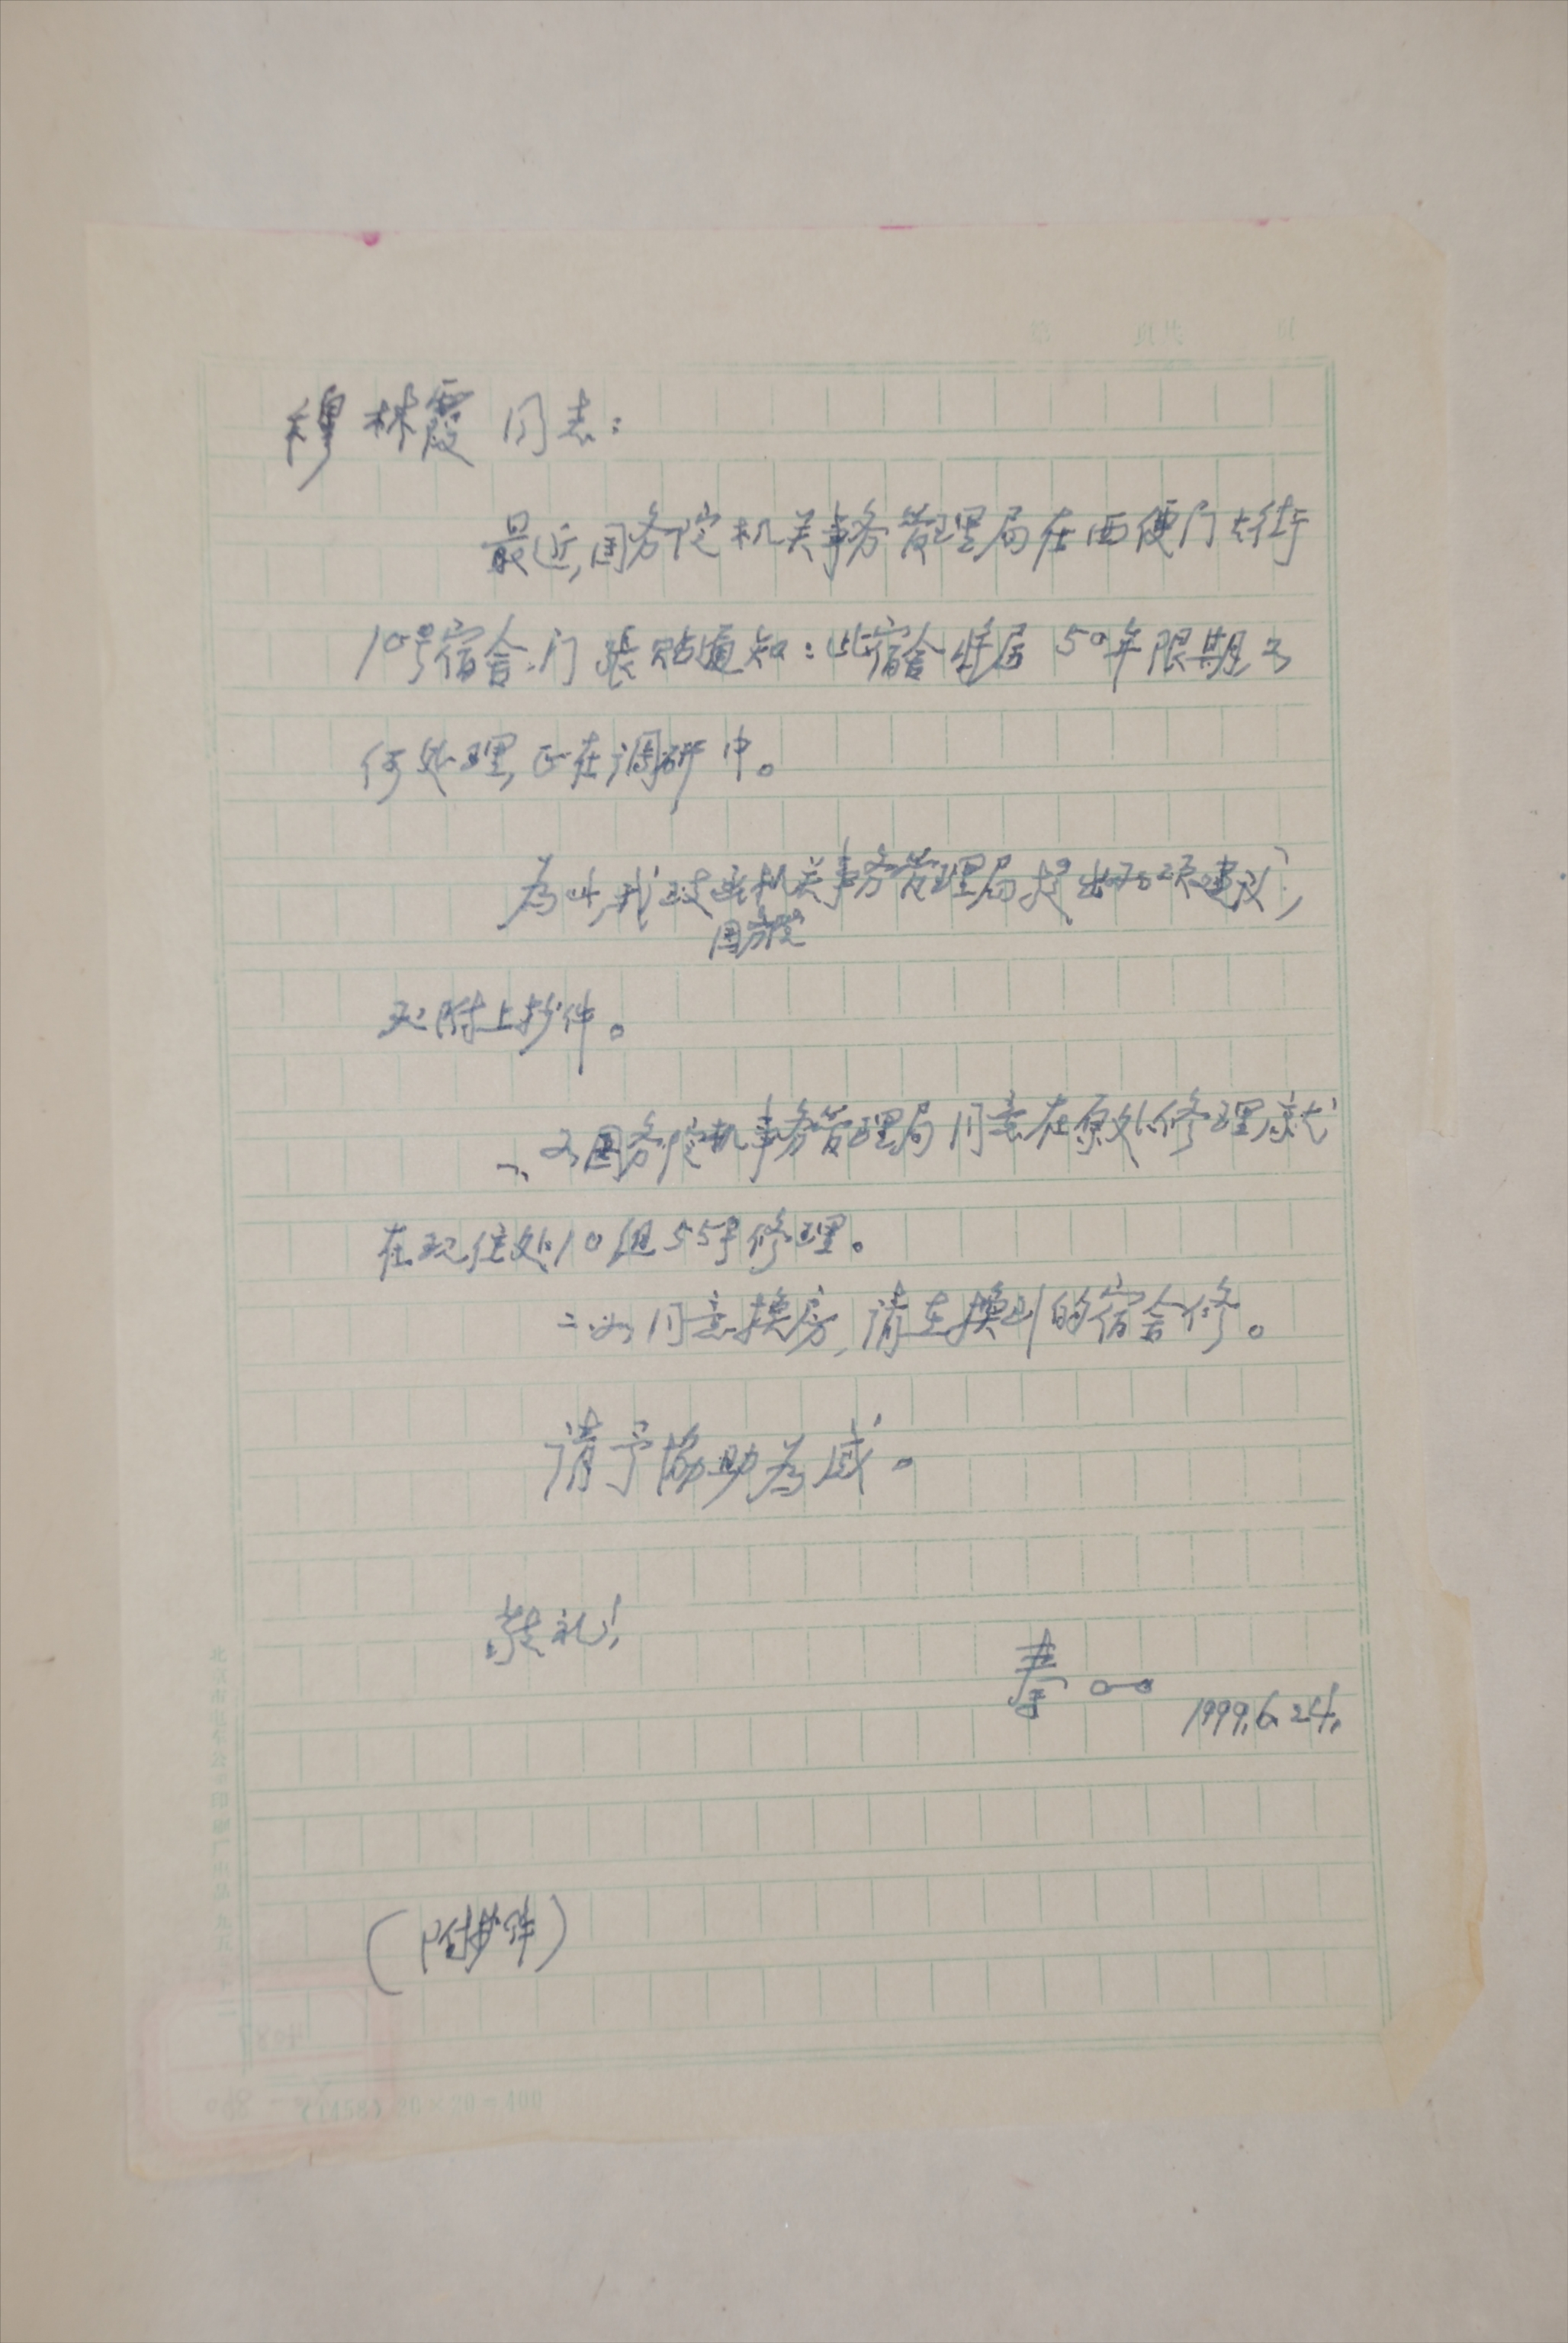 穆林霞同志：
最近,国务院机关事务管理局在西便门大街
10号宿舍门张贴通知：此宿舍将届50年限期如
何处理,正在调研中。
为此,我对国务院机关事务管理局提出两项建议,
现附上抄件。
一、如国务院机事务管理局同意在原处修理就
在现住处10组55号修理。
二、如同意换房,请在换到的宿舍修。
请予协助为感。
敬礼！
寿
1999.6.24.
(附抄件)
20×20=400